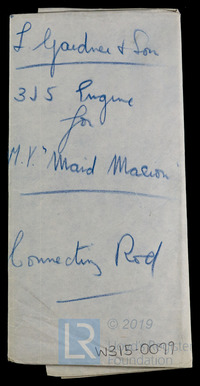 L Gardner & Son
3J5 Engine
for
M.Y. "Maid Marion"
Connecting Rod
© 2019
LR
Foundation
W315-0099